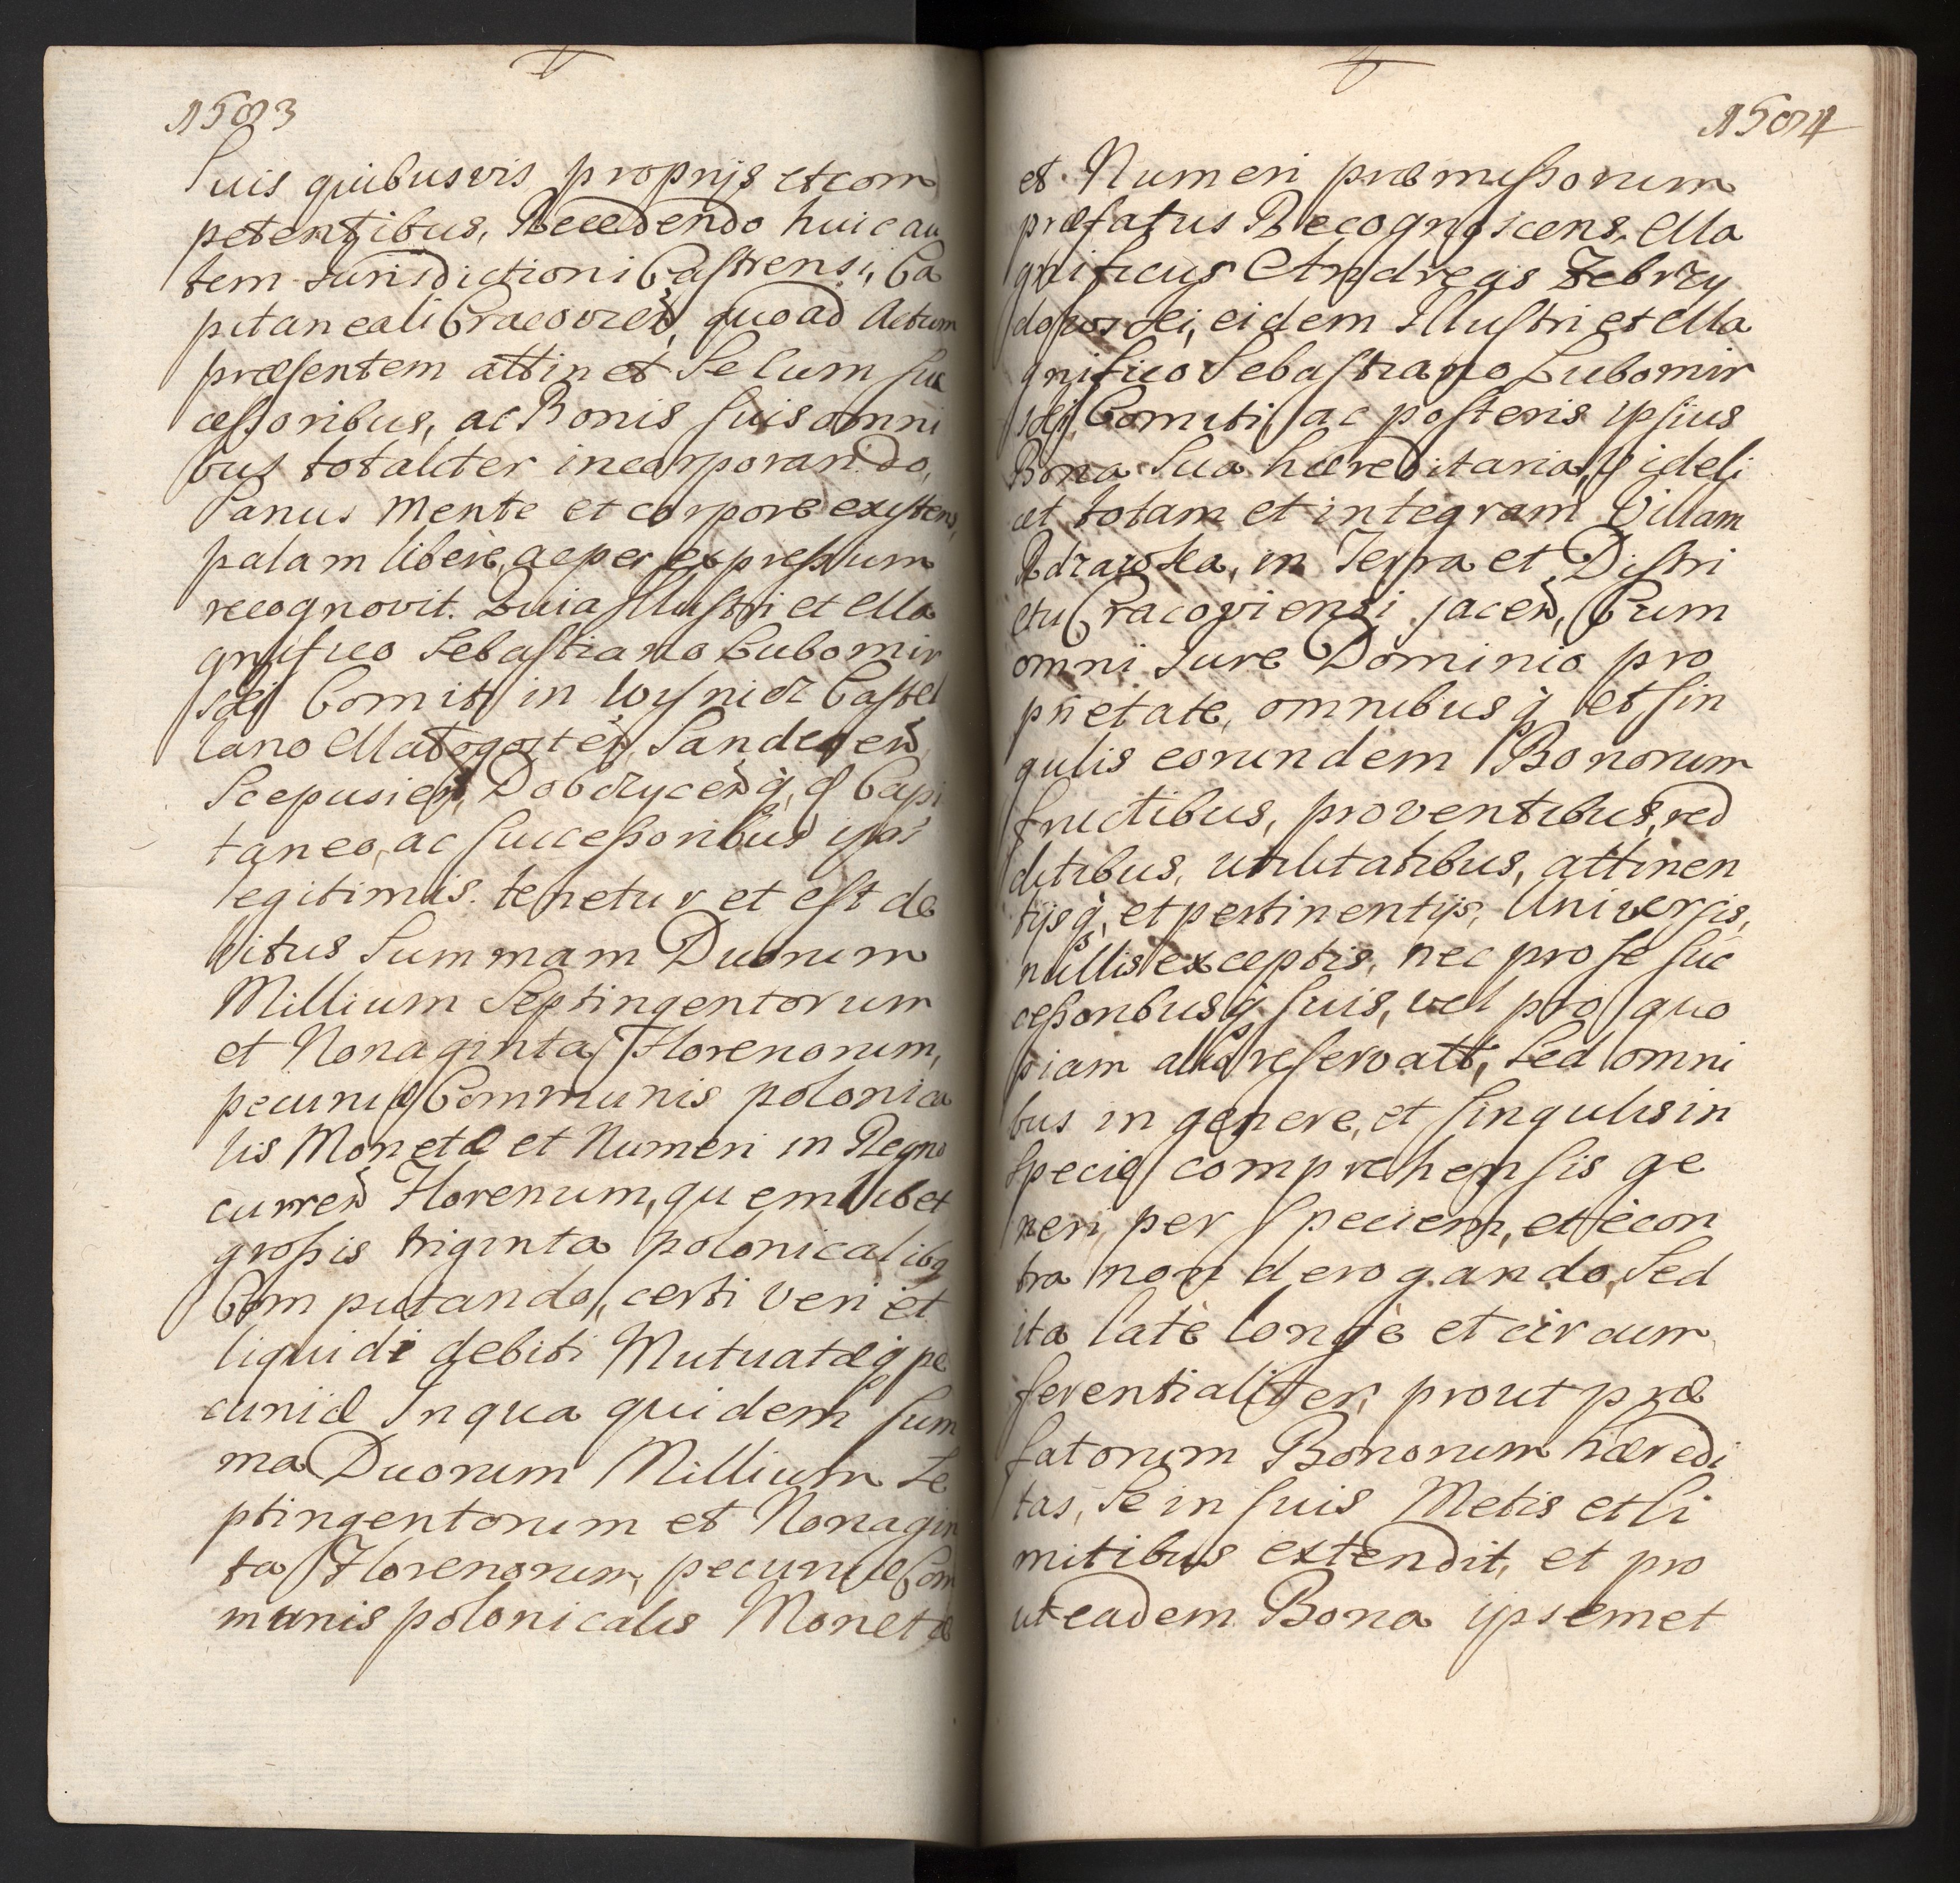 1503
Suis quibusvis proprijs et com
petentibus, Recedendo huic au
tem Jurisdictioni Castrensi, Ca
pitaneali Cracovień, quoad Actum
præsentem attinet Se Cum suc
cessoribus, ac Bonis suis omni
bus totaliter incorporando,
Sanus Mente et corpore existens,
palam libere, ac per expressum
recognovit. Quia Illustri et Ma
gnifico Sebastiano Lubomir
sci Comiti in Wysnicz Castel
lano Malogosteń, Sandeceń
Scepusień, Dobczyceń q̃, & Capi
taneo, ac successoribus ipsi9
legitimis. tenetur et est de
bitus Summam Duorum
Millium Septingentorum
et Nonaginta Florenorum,
pecuniæ Communis polonica
lis Monetæ et Numeri in Regno
curreń Florenum, quemlibet
grossis triginta polonicalibq
Computando, certi veri et
liquidi debiti Mutuatæq̃ pe
cuniæ In qua quidem sum
ma Duorum Millium Se
ptingentorum et Nonagin
ta Florenorum, pecuniæ Com
munis polonicalis Monetæ
1504
et Numeri præmissorum
præfatus Recognoscens, Ma
gnificus Andreas Zebrzy
dowski, eidem Illustri et Ma
gnifico Sebastiano Lubomir
sci, Comiti, ac posteris ipsius
Bona Sua hæreditaria, videli
cet totam et integram Villam
Rdzawka, in Terra et Distri
ctu Cracoviensi jaceń, Cum
omni Jure Dominio pro
prietate, omnibusq̃ et sin
gulis eorundem Bonorum
fructibus, proventibus, red
ditibus, utilitatibus, attinen
tijsq̃, et pertinentijs, Universis,
nullis exceptis, nec pro se suc
cessoribusq̃ suis, vel pro quo
piam alio reservatt, Sed omni
bus in genere, et singulis in
specie comprehensis ge
neri per speciem, etècon
tra non derogando, Sed
ita latè longè et circum
ferentialiter, prout præ
fatorum Bonorum hæredi
tas, Se in suis Metis et li
mitibus extendit, et pro
ut eadem Bona ipsemet